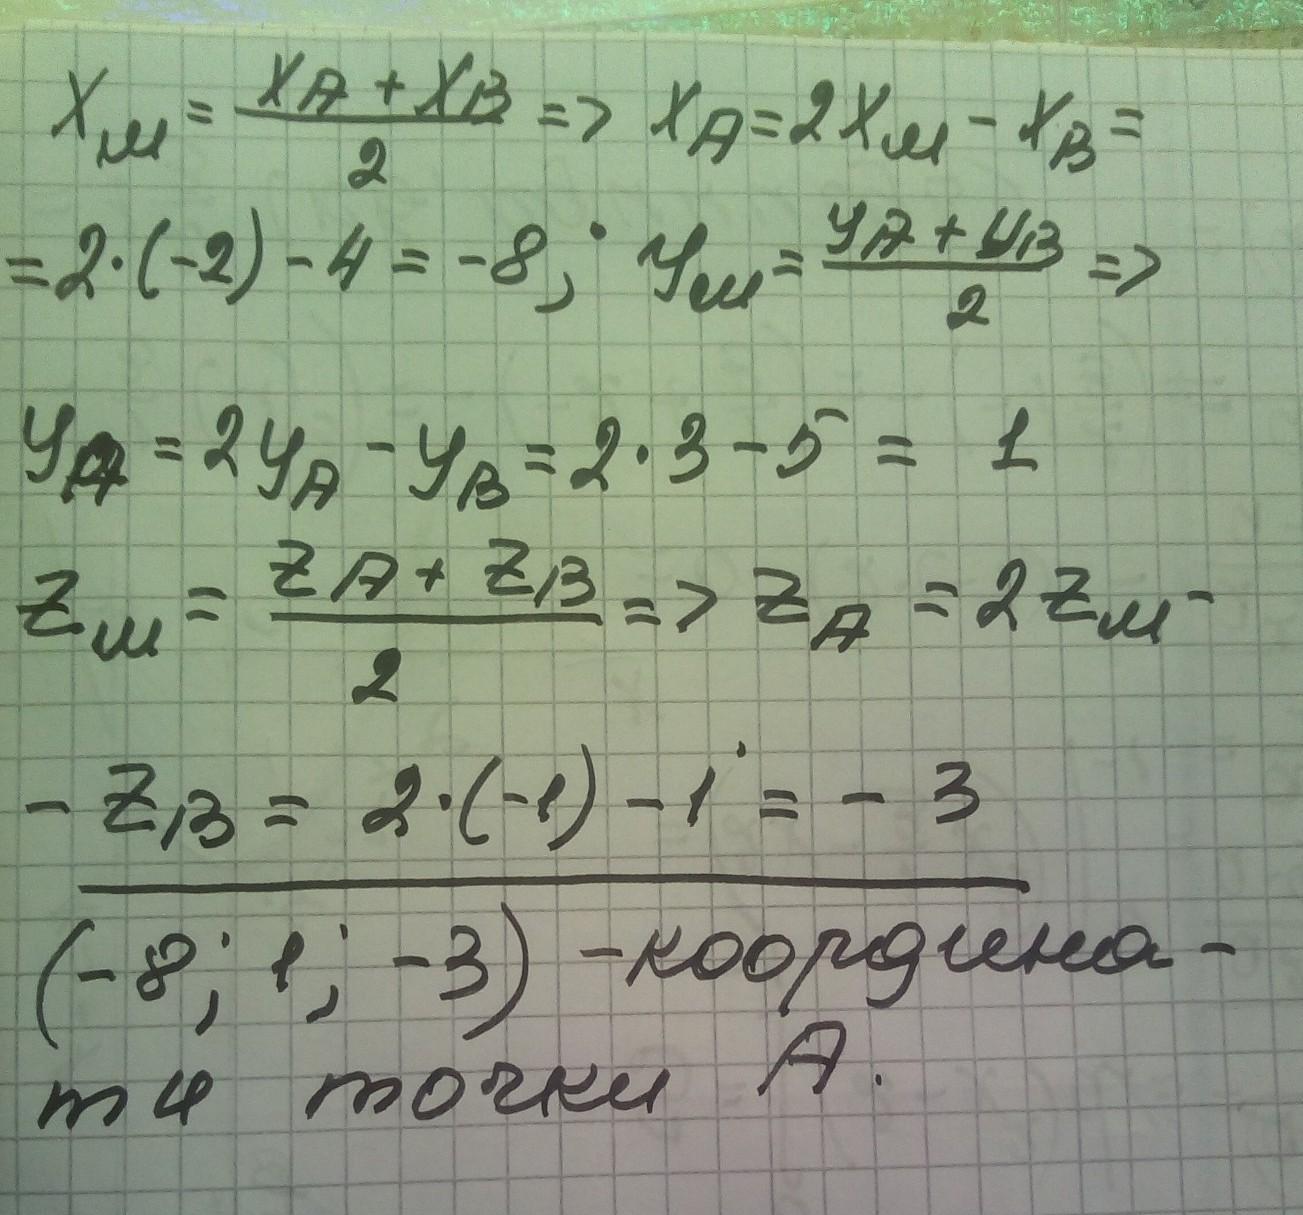 Xм = (XA + XB)/2 => XA = 2Xм - XB =
= 2·(-2) - 4 = -8; Yм = (YA + YB)/2 =>
YA = 2YA - YB = 2·3 - 5 = 1
Zм = (ZA + ZB)/2 => ZA = 2Zм -
- ZB = 2·(-1) - 1 = - 3
(-8; 1; -3) - координа-
ты точки A.